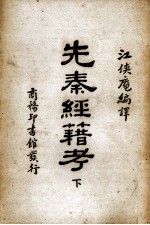 江俠庵編譯
先秦經籍考
下
商務印書館發行